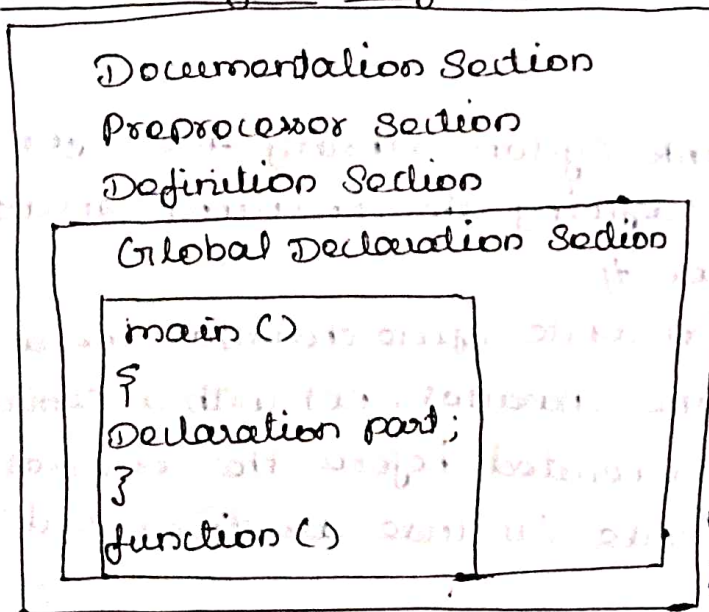 Documentation Section
Preprocessor Section
Definition Section
Global Declaration Section
main ()
{
Declaration part;
}
function ()